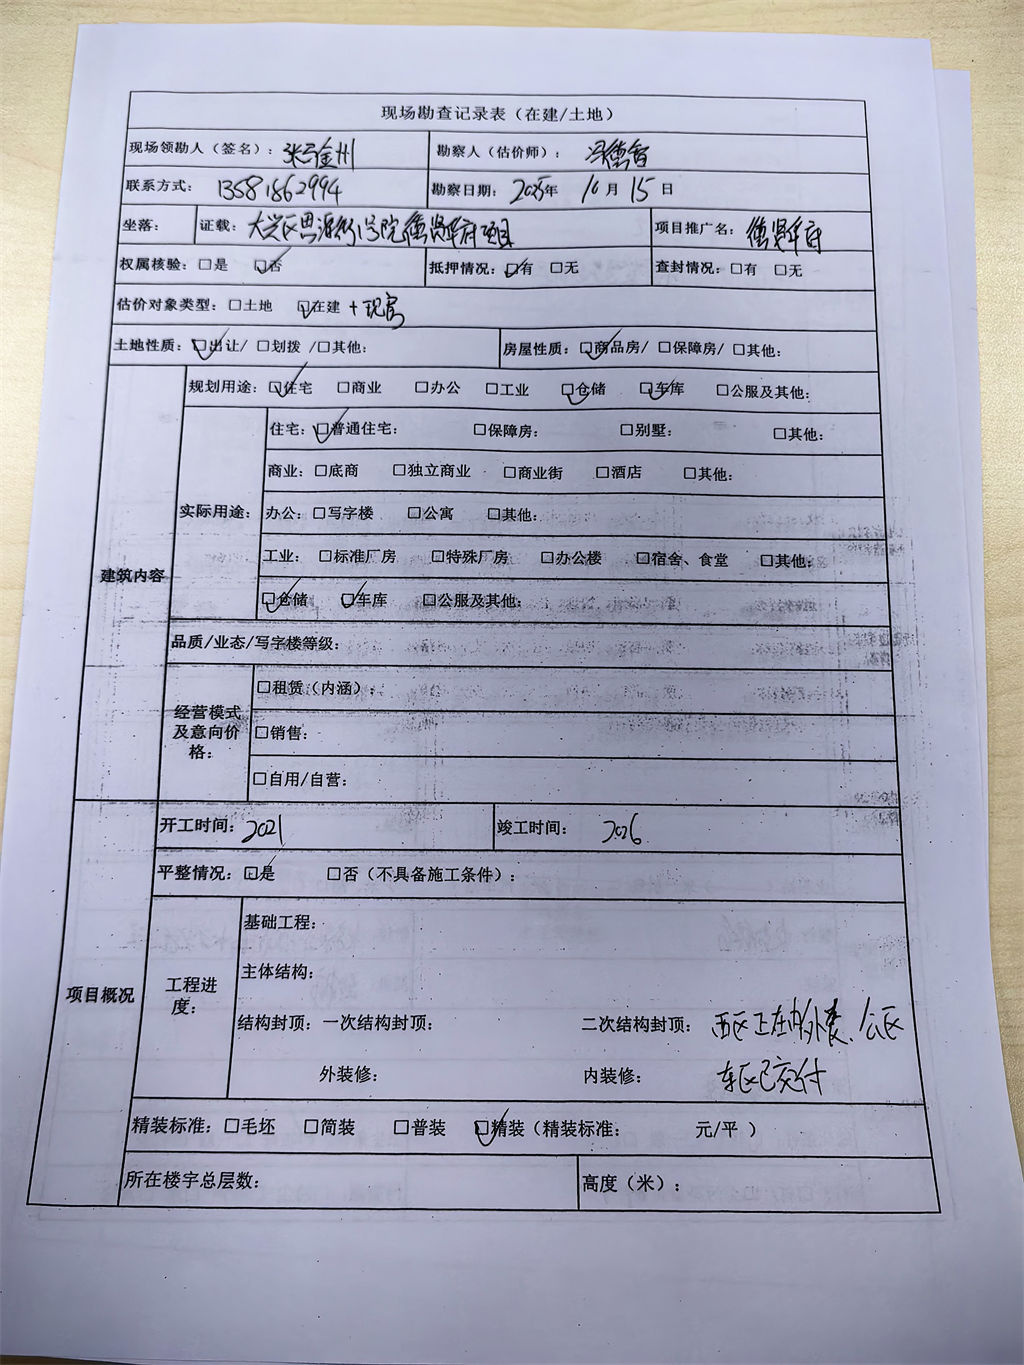 现场勘查记录表（在建/土地）
现场领勘人（签名）： 张 金州 勘察人（估价师）： 冯德
联系方式： 13581862994 勘察日期： 2025年 10月 15日
坐落： 证载： 大兴区思源街 号院 贤华府项目 项目推广名： 贤华府
权属核验：□是 ☑否 抵押情况：☑有 □无 查封情况：□有 □无
估价对象类型：□土地 ☑在建 + 现房
土地性质：☑出让/ □划拨 /□其他： 房屋性质：☑商品房/ □保障房/ □其他：
建筑内容
规划用途：☑住宅 □商业 □办公 □工业 ☑仓储 ☑车库 □公服及其他：
实际用途：
住宅：☑普通住宅： □保障房： □别墅： □其他：
商业：□底商 □独立商业 □商业街 □酒店 □其他：
办公：□写字楼 □公寓 □其他：
工业： □标准厂房 □特殊厂房 □办公楼 □宿舍、食堂 □其他：
☑仓储 ☑车库 □公服及其他：
品质/业态/写字楼等级：
经营模式
及意向价
格：
□租赁（内涵）：
□销售：
□自用/自营：
项目概况
开工时间： 2021 竣工时间： 2026
平整情况：☑是 □否（不具备施工条件）：
工程进
度：
基础工程：
主体结构：
结构封顶：一次结构封顶： 二次结构封顶： 西区正在内外装、公区
外装修： 内装修： 东区已交付
精装标准：□毛坯 □简装 □普装 ☑精装（精装标准： 元/平 ）
所在楼宇总层数： 高度（米）：